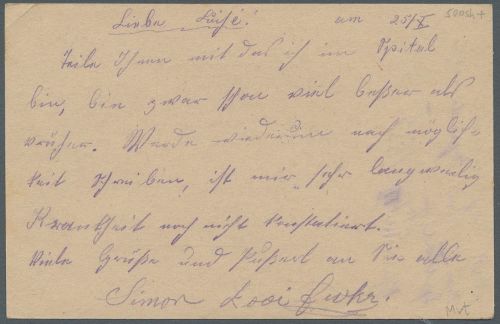 Liebe Luise! am 25/X
Teile Ihnen mit das ich im Spital
bin, bin zwar schon viel beßer als
früher. Werde wiederum nach möglich-
keit schreiben, ist mir sehr langweilig
Krankheit noch nicht konstatiert.
Viele Grüße und Bußerl an Sie alle
Simon
M.A